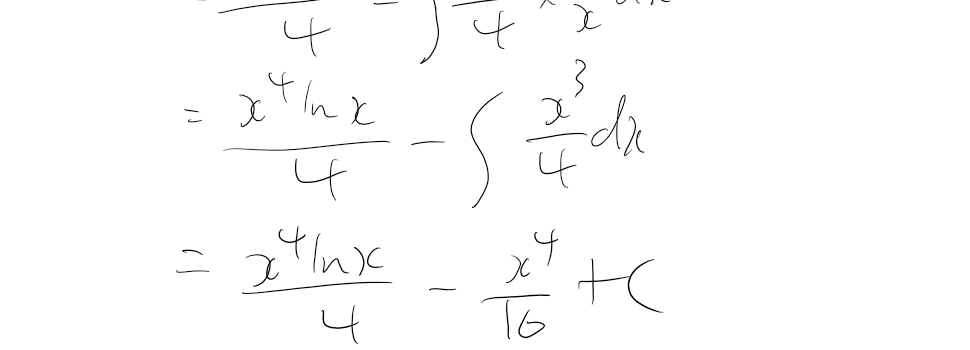 /4 - ∫ /4 × /x dx
= x⁴ln x/4 - ∫ x³/4 dx
= x⁴ln x/4 - x⁴/16 + C